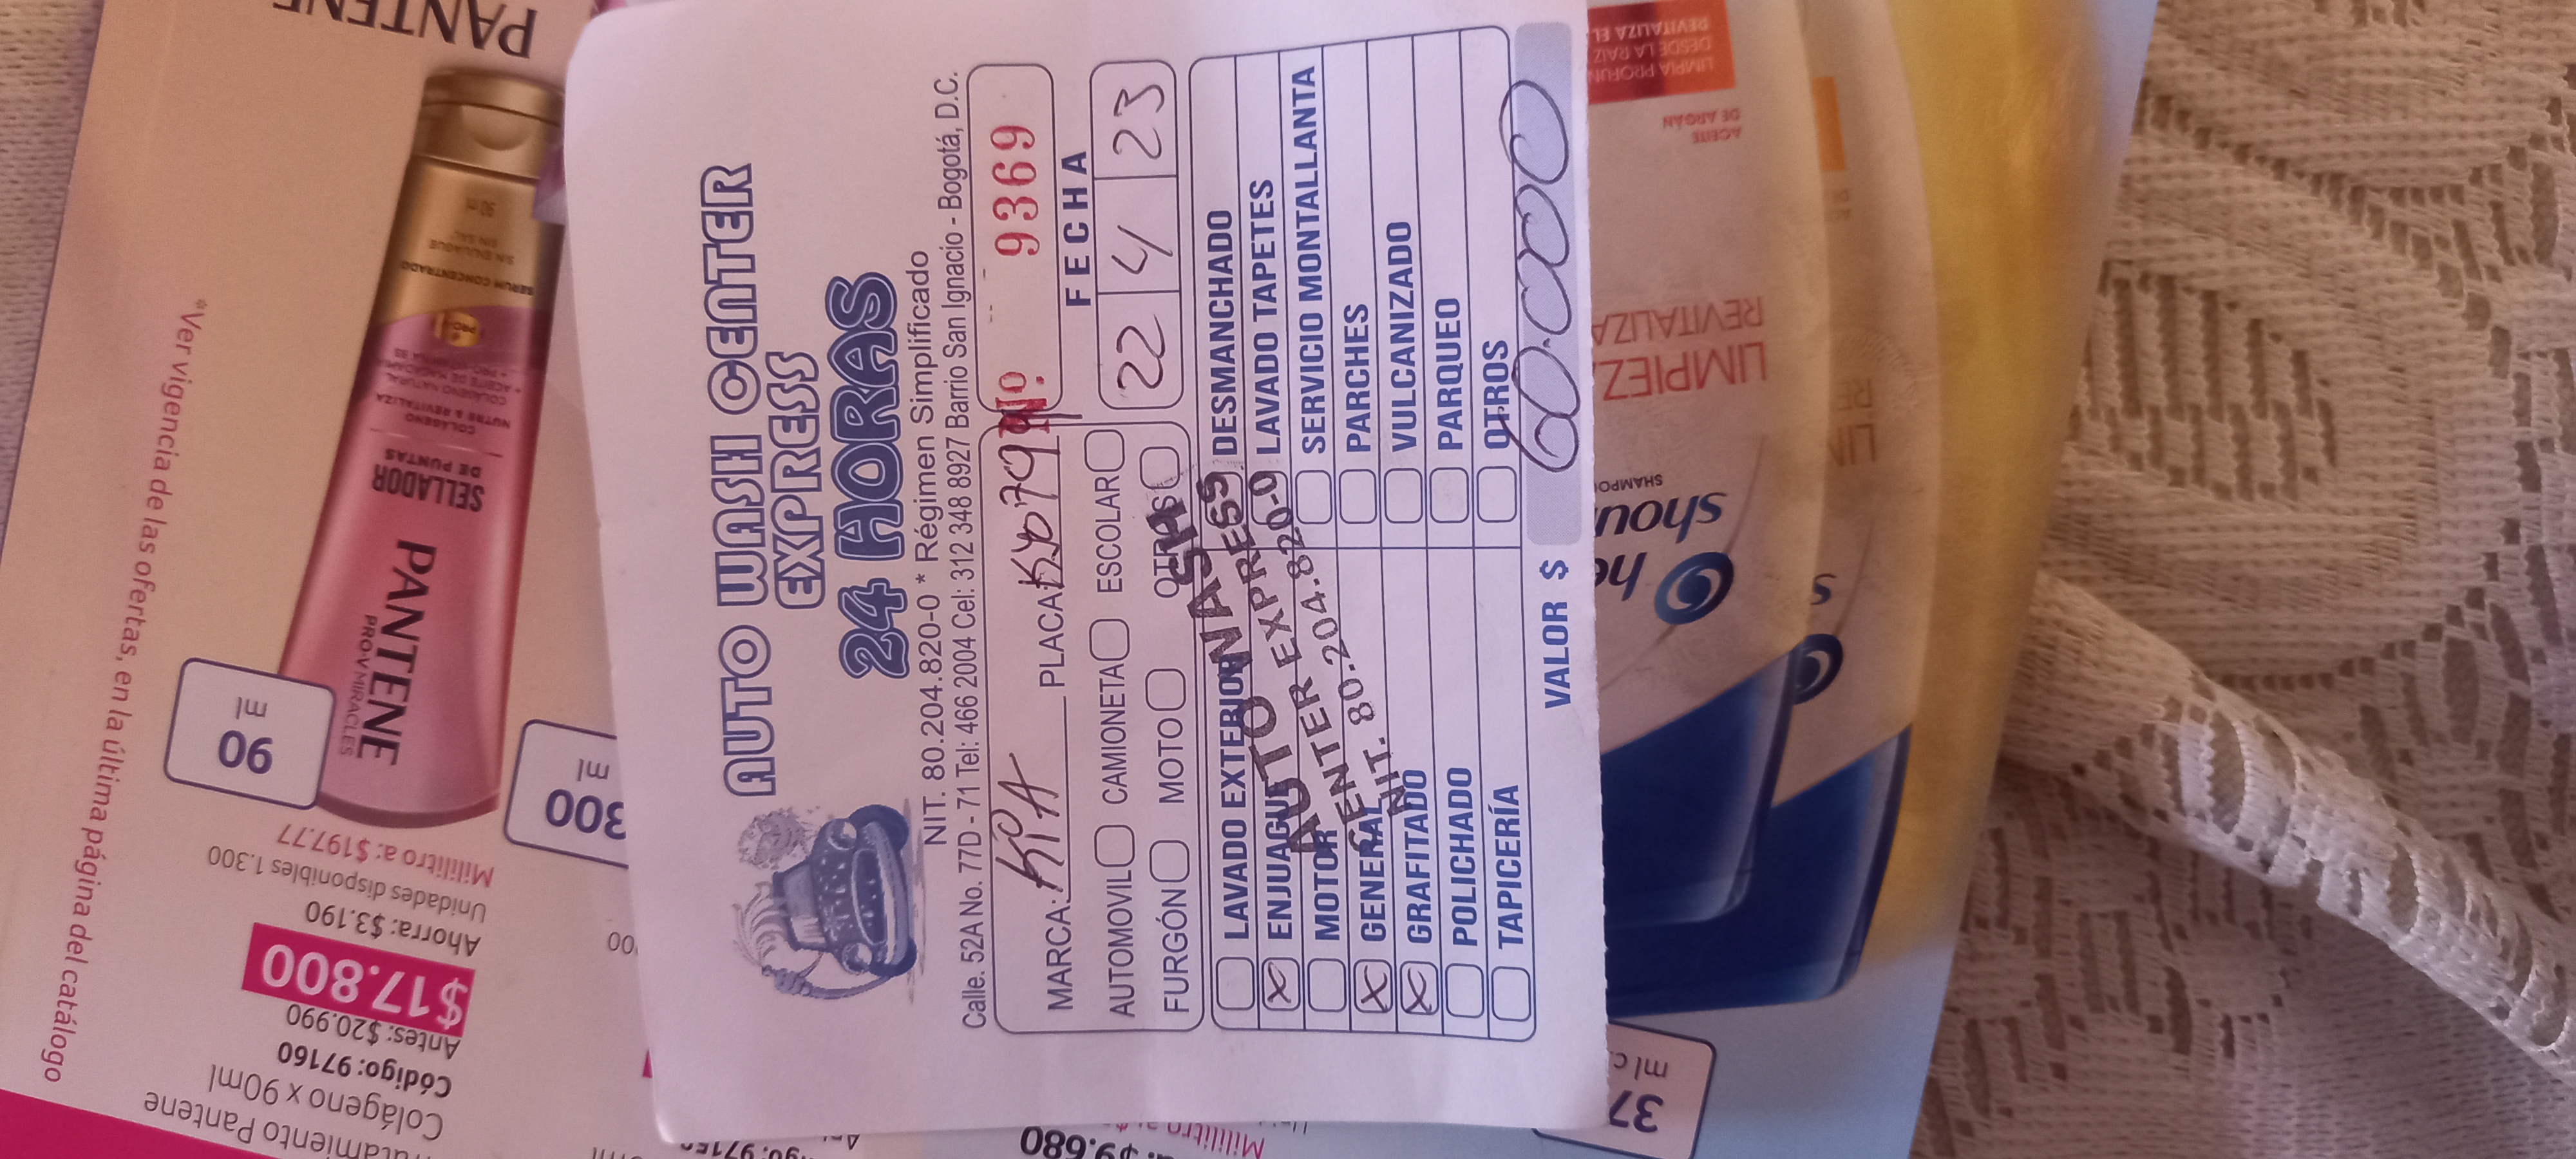 AUTO WASH CENTER
EXPRESS
24 HORAS
NIT. 80.204.820-0 * Régimen Simplificado
Calle. 52A No. 77D - 71 Tel: 466 2004 Cel: 312 348 8927 Barrio San Ignacio - Bogotá, D.C.
MARCA: KIA PLACA
No. 9369
AUTOMOVIL CAMIONETA ESCOLAR
FURGÓN MOTO OTROS
FECHA
22 4 23
LAVADO EXTERIOR DESMANCHADO
X ENJUAGUE LAVADO TAPETES
MOTOR SERVICIO MONTALLANTA
X GENERAL PARCHES
X GRAFITADO VULCANIZADO
POLICHADO PARQUEO
TAPICERÍA OTROS
VALOR $ 60.000
AUTO WASH
CENTER EXPRESS
NIT. 80.204.820-0
PANTENE
*Ver vigencia de las ofertas, en la última página del catálogo
PANTENE
PRO-V MIRACLES
SELLADOR
DE PUNTAS
COLÁGENO
NUTRE & REVITALIZA
SERUM CONCENTRADO
SIN ENJUAGUE
90 ml
90
ml
300
ml
Tratamiento Pantene
Colágeno x 90ml
Código: 97160
Antes: $20.990
$17.800
Ahorra: $3.190
Unidades disponibles 1.300
Mililitro a: $197.77
SHAMPOO
LIMPIEZA
REVITALIZA
ACEITE
DE ARGÁN
LIMPIA PROFUN
DESDE LA RAÍZ
REVITALIZA EL
37
ml c
$9.680
Mililitro a: $